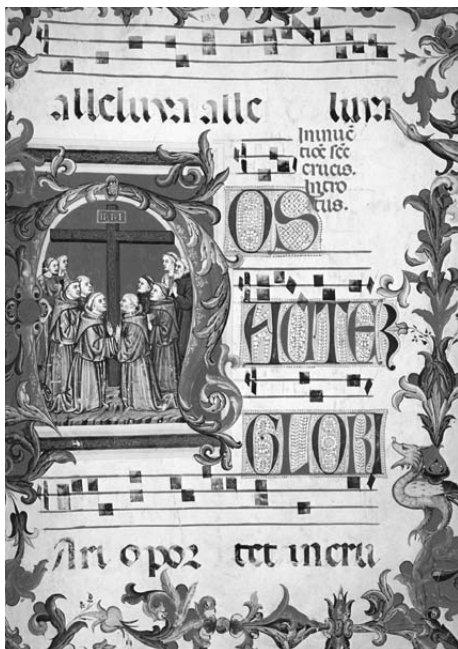 alleluya alle luya
In inuē
tiōe scē
crucis.
Intro
tus.
OS
AUTEM
GLORI
Ari opor tet incru